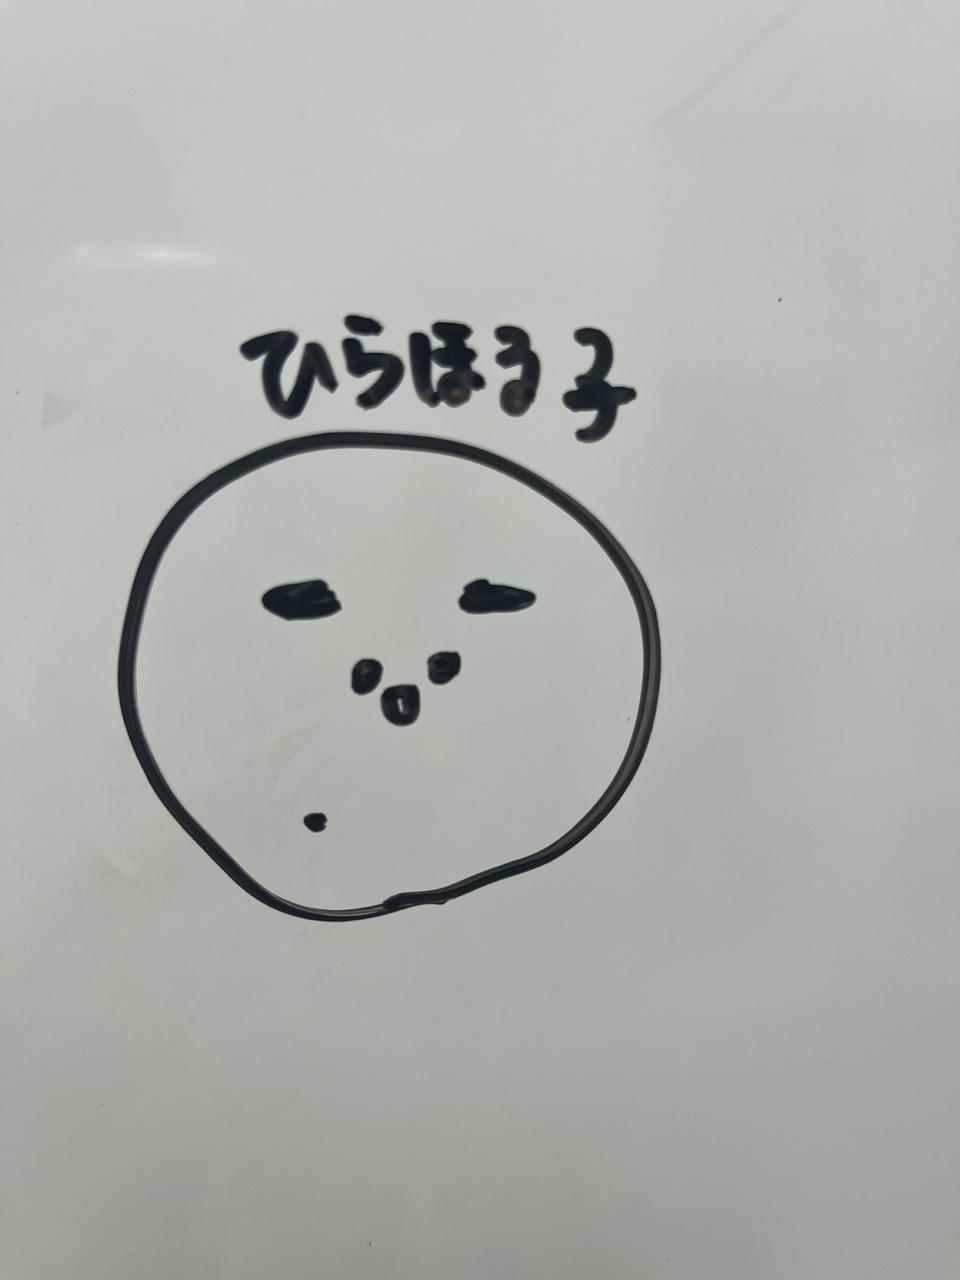 ひらほる子